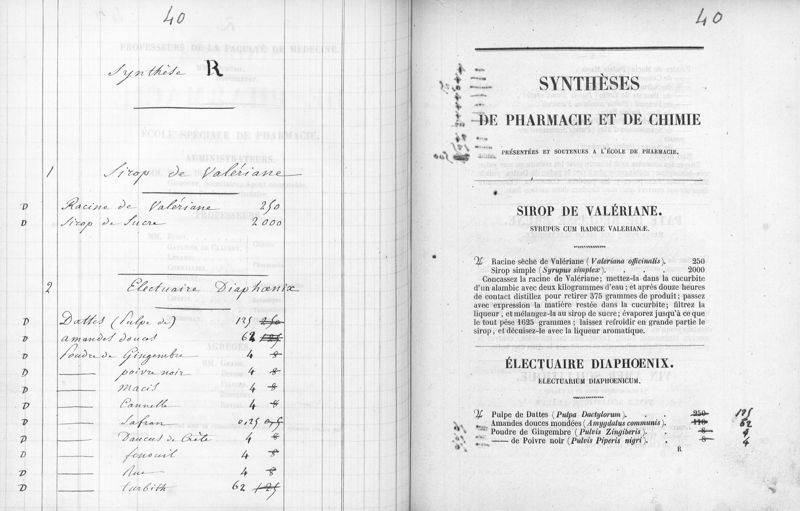 40
Synthèse R
1 Sirop de Valériane
D Racine de Valériane 250
D Sirop de Sucre 2000
2 Electuaire Diaphœnix
D Dattes (Pulpe de) 125 250
D amandes douces 62 125
D Poudre de Gingembre 4 8
D —— poivre noir 4 8
D —— macis 4 8
D —— Cannelle 4 8
D —— Safran 0,125
D —— Daucus de Crète 4 8
D —— fenouil 4 8
D —— Rue 4 8
D —— turbith 62 125
40
SYNTHÈSES
DE PHARMACIE ET DE CHIMIE
PRÉSENTÉES ET SOUTENUES A L'ÉCOLE DE PHARMACIE.
SIROP DE VALÉRIANE.
SYRUPUS CUM RADICE VALERIANÆ.
♃ Racine sèche de Valériane (Valeriana officinalis). 250
Sirop simple (Syrupus simplex). . . . 2000
Concassez la racine de Valériane; mettez-la dans la cucurbite
d'un alambic avec deux kilogrammes d'eau; et après douze heures
de contact distillez pour retirer 375 grammes de produit; passez
avec expression la matière restée dans la cucurbite; filtrez la
liqueur, et mélangez-la au sirop de sucre; évaporez jusqu'à ce que
le tout pèse 1625 grammes; laissez refroidir en grande partie le
sirop, et décuisez-le avec la liqueur aromatique.
ÉLECTUAIRE DIAPHOENIX.
ELECTUARIUM DIAPHOENICUM.
♃ Pulpe de Dattes (Pulpa Dactylorum). . . 250 125
Amandes douces mondées (Amygdalus communis). 110 62
Poudre de Gingembre (Pulvis Zingiberis). . . 8 4
—— de Poivre noir (Pulvis Piperis nigri). . . 8 4
R